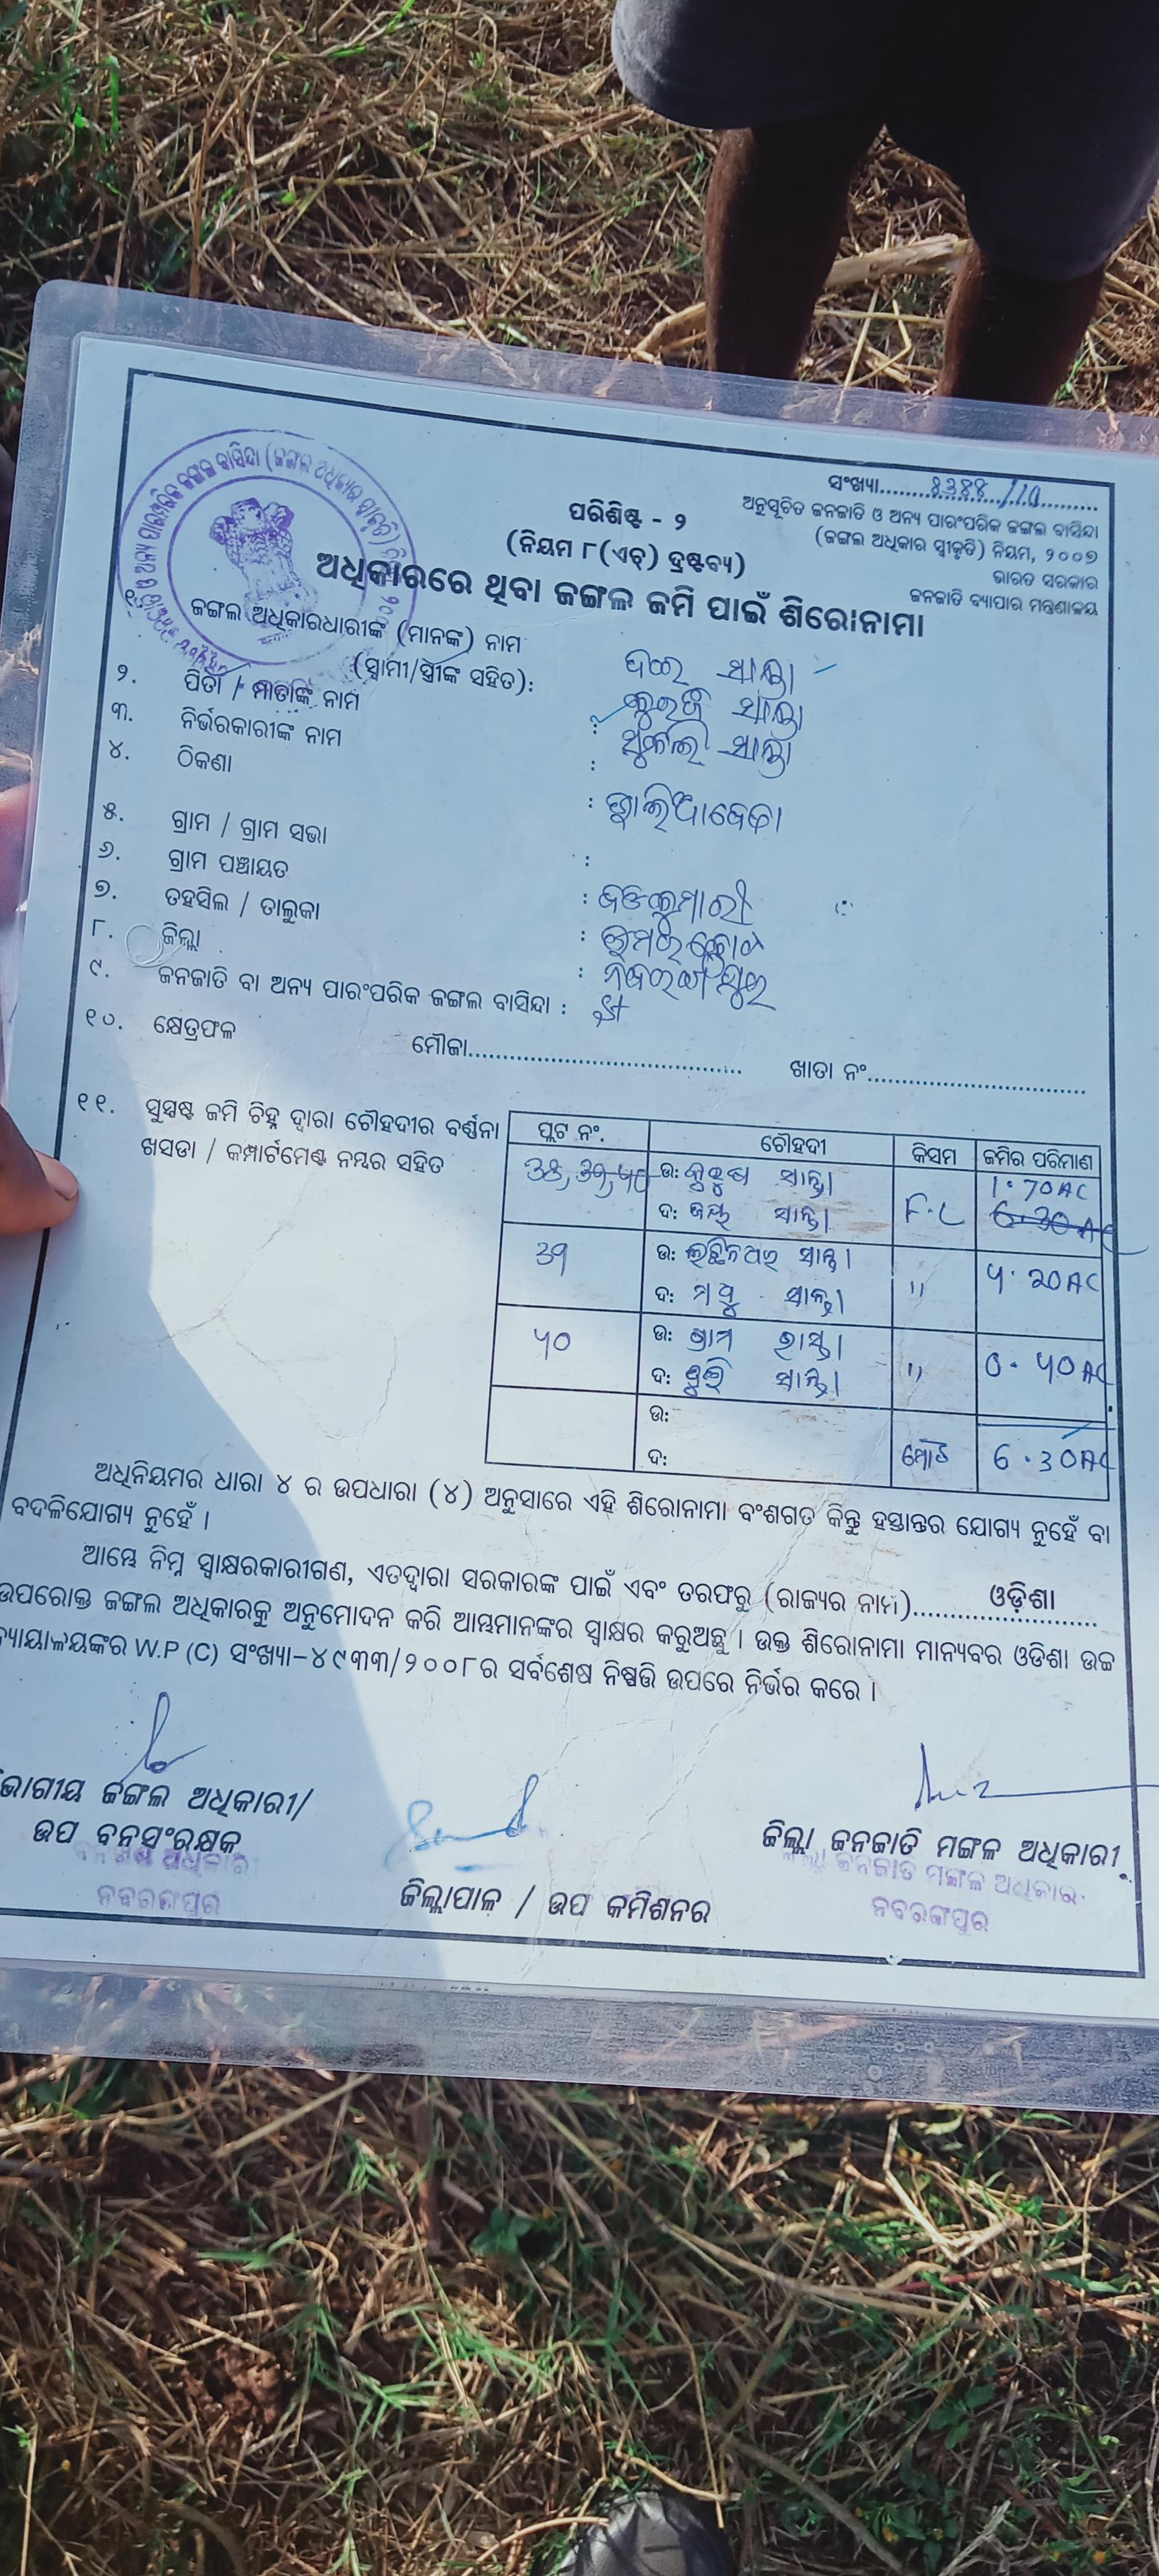 ସଂଖ୍ୟା
ଅନୁସୂଚିତ ଜନଜାତି ଓ ଅନ୍ୟ ପାରଂପରିକ ଜଙ୍ଗଲ ବାସିନ୍ଦା
(ଜଙ୍ଗଲ ଅଧିକାର ସ୍ଵୀକୃତି) ନିୟମ, ୨୦୦୭
ଭାରତ ସରକାର
ଜନଜାତି ବ୍ୟାପାର ମନ୍ତ୍ରଣାଳୟ
ପରିଶିଷ୍ଟ - ୨
(ନିୟମ ୮(ଏଚ୍) ଦ୍ରଷ୍ଟବ୍ୟ)
ଅଧିକାରରେ ଥିବା ଜଙ୍ଗଲ ଜମି ପାଇଁ ଶିରୋନାମା
୧. ଜଙ୍ଗଲ ଅଧିକାରଧାରୀଙ୍କ (ମାନଙ୍କ) ନାମ
(ସ୍ୱାମୀ/ସ୍ତ୍ରୀଙ୍କ ସହିତ):
୨. ପିତା / ମାତାଙ୍କ ନାମ :
୩. ନିର୍ଭରକାରୀଙ୍କ ନାମ :
୪. ଠିକଣା :
୫. ଗ୍ରାମ / ଗ୍ରାମ ସଭା :
୬. ଗ୍ରାମ ପଞ୍ଚାୟତ :
୭. ତହସିଲ / ତାଲୁକା : ଉମରକୋଟ
୮. ଜିଲ୍ଲା : ନବରଙ୍ଗପୁର
୯. ଜନଜାତି ବା ଅନ୍ୟ ପାରଂପରିକ ଜଙ୍ଗଲ ବାସିନ୍ଦା : ST
୧୦. କ୍ଷେତ୍ରଫଳ ମୌଜା ଖାତା ନଂ
୧୧. ସୁସ୍ପଷ୍ଟ ଜମି ଚିହ୍ନ ଦ୍ୱାରା ଚୌହଦୀର ବର୍ଣ୍ଣନା
ଖସଡା / କମ୍ପାର୍ଟମେଣ୍ଟ ନମ୍ବର ସହିତ
ପ୍ଲଟ ନଂ. ଚୌହଦୀ କିସମ ଜମିର ପରିମାଣ
ଉ: ସାନ୍ତା F.C 1.70AC
ଦ: ସାନ୍ତା 6.30AC
39 ଉ: ସାନ୍ତା " 4.20AC
ଦ: ମଧୁ ସାନ୍ତା
40 ଉ: ଗ୍ରାମ ରାସ୍ତା " 0.40AC
ଦ: ସାନ୍ତା
ଉ:
ଦ: ମୋଟ 6.30AC
ଅଧିନିୟମର ଧାରା ୪ ର ଉପଧାରା (୪) ଅନୁସାରେ ଏହି ଶିରୋନାମା ବଂଶଗତ କିନ୍ତୁ ହସ୍ତାନ୍ତର ଯୋଗ୍ୟ ନୁହେଁ ବା
ବଦଳିଯୋଗ୍ୟ ନୁହେଁ ।
ଆମ୍ଭେ ନିମ୍ନ ସ୍ୱାକ୍ଷରକାରୀଗଣ, ଏତଦ୍ୱାରା ସରକାରଙ୍କ ପାଇଁ ଏବଂ ତରଫରୁ (ରାଜ୍ୟର ନାମ) ଓଡ଼ିଶା
ଉପରୋକ୍ତ ଜଙ୍ଗଲ ଅଧିକାରକୁ ଅନୁମୋଦନ କରି ଆମ୍ଭମାନଙ୍କର ସ୍ୱାକ୍ଷର କରୁଅଛୁ । ଉକ୍ତ ଶିରୋନାମା ମାନ୍ୟବର ଓଡିଶା ଉଚ୍ଚ
ନ୍ୟାୟାଳୟଙ୍କର W.P (C) ସଂଖ୍ୟା-୪୯୩୩/୨୦୦୮ର ସର୍ବଶେଷ ନିଷ୍ପତ୍ତି ଉପରେ ନିର୍ଭର କରେ ।
ଭାଗୀୟ ଜଙ୍ଗଲ ଅଧିକାରୀ/
ଉପ ବନସଂରକ୍ଷକ
ନବରଙ୍ଗପୁର
ଜିଲ୍ଲାପାଳ / ଉପ କମିଶନର
ଜିଲ୍ଲା ଜନଜାତି ମଙ୍ଗଳ ଅଧିକାରୀ
ଜିଲ୍ଲା ଜନଜାତି ମଙ୍ଗଳ ଅଧିକାରୀ
ନବରଙ୍ଗପୁର